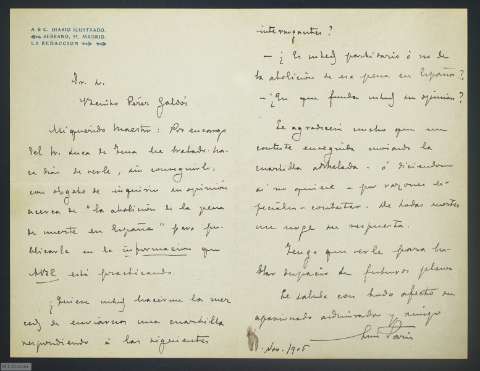 A B C. DIARIO ILUSTRADO.
SERRANO, 55, MADRID.
LA REDACCION
Sr. D.
Benito Pérez Galdós
Mi querido Maestro: Por encargo
del Sr. Luca de Tena he tratado ha-
ce días de verle, sin conseguirlo,
con objeto de inquirir su opinión
acerca de "la abolición de la pena
de muerte en España" para pu-
blicarla en la información que
ABC está practicando.
¿Quiere usted hacerme la mer-
ced de enviarnos una cuartilla
respondiendo á las siguientes
interrogantes?
- ¿Es usted partidario ó no de
la abolición de esa pena en España?
- ¿En que funda usted su opinión?
Le agradeceré mucho que me
conteste enseguida enviando la
cuartilla anhelada - ó diciéndome
si no quiere - por razones es-
peciales - contestar. De todas suertes
me urge su respuesta.
Tengo que verle para ha-
blar despacio de futuros planes
Le saluda con todo afecto su
apasionado admirador y amigo
Luis París
Nov. 1905